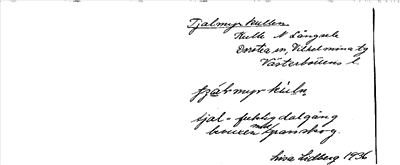 Tjalmyrkullen
Kulle N Långsele
Dorotea sn, Vilhelmina tg
Västerbottens l.
tjal - fuktig dalgång
med granskog.
Lisa Lidberg 1936